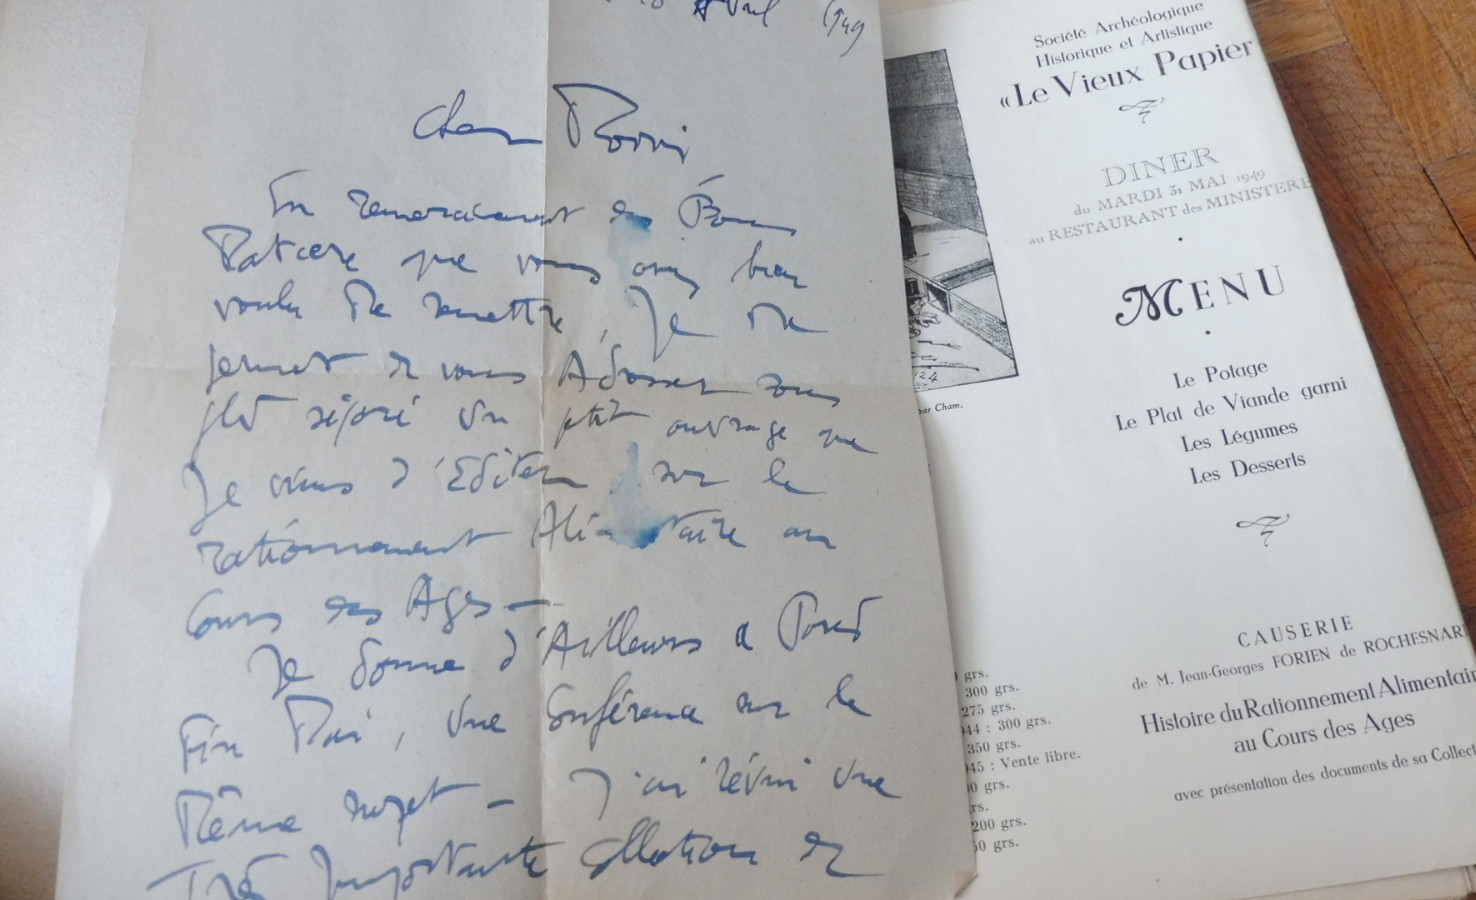 Avril 1949
Cher
En remerciement des Bons
Matière que vous avez bien
voulu me remettre, Je me
permet de vous Adresser sous
pli séparé un petit ouvrage que
Je viens d'Editer sur le
rationnement Alimentaire au
Cours des Ages —
Je donne d'Ailleurs a Paris
Fin Mai, une Conférence sur le
Même sujet — J'ai réuni une
Très Importante Collection de
124
par Cham.
grs.
300 grs.
275 grs.
44 : 300 grs.
350 grs.
45 : Vente libre.
0 grs.
rs.
200 grs.
50 grs.
Société Archéologique
Historique et Artistique
«Le Vieux Papier
DINER
du MARDI 31 MAI 1949
au RESTAURANT des MINISTERE
MENU
Le Potage
Le Plat de Viande garni
Les Légumes
Les Desserts
CAUSERIE
de M. Jean-Georges FORIEN de ROCHESNAR
Histoire du Rationnement Alimentair
au Cours des Ages
avec présentation des documents de sa Collect